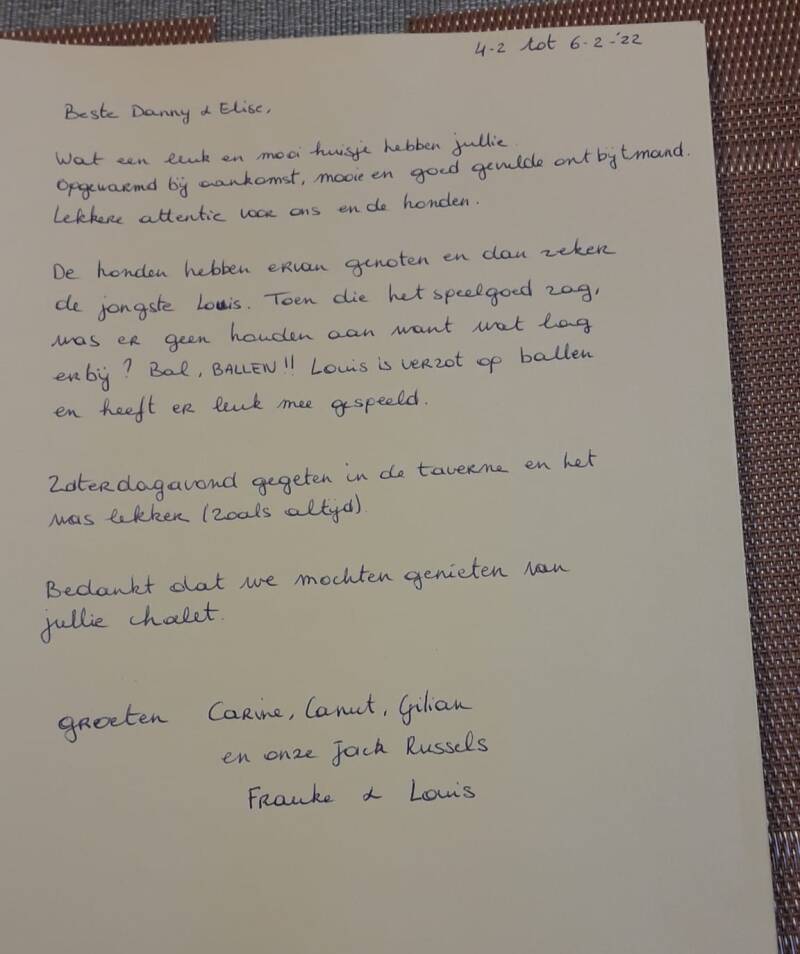 4-2 tot 6-2-'22
Beste Danny & Elise,
Wat een leuk en mooi huisje hebben jullie.
Opgewarmd bij aankomst, mooie en goed gevulde ontbijtmand.
Lekkere attentie voor ons en de honden.
De honden hebben ervan genoten en dan zeker
de jongste Louis. Toen die het speelgoed zag,
was er geen houden aan want wat lag
erbij? Bal, BALLEN!! Louis is verzot op ballen
en heeft er leuk mee gespeeld.
Zaterdagavond gegeten in de taverne en het
was lekker (zoals altijd).
Bedankt dat we mochten genieten van
jullie chalet.
groeten Carine, Canut, Gilian
en onze Jack Russels
Frauke & Louis